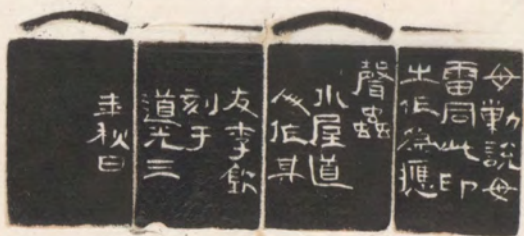 毋勦說毋
雷同此印
之作為應
聲蟲
小屋道
人作其
友李欽
刻于
道光三
年秋日